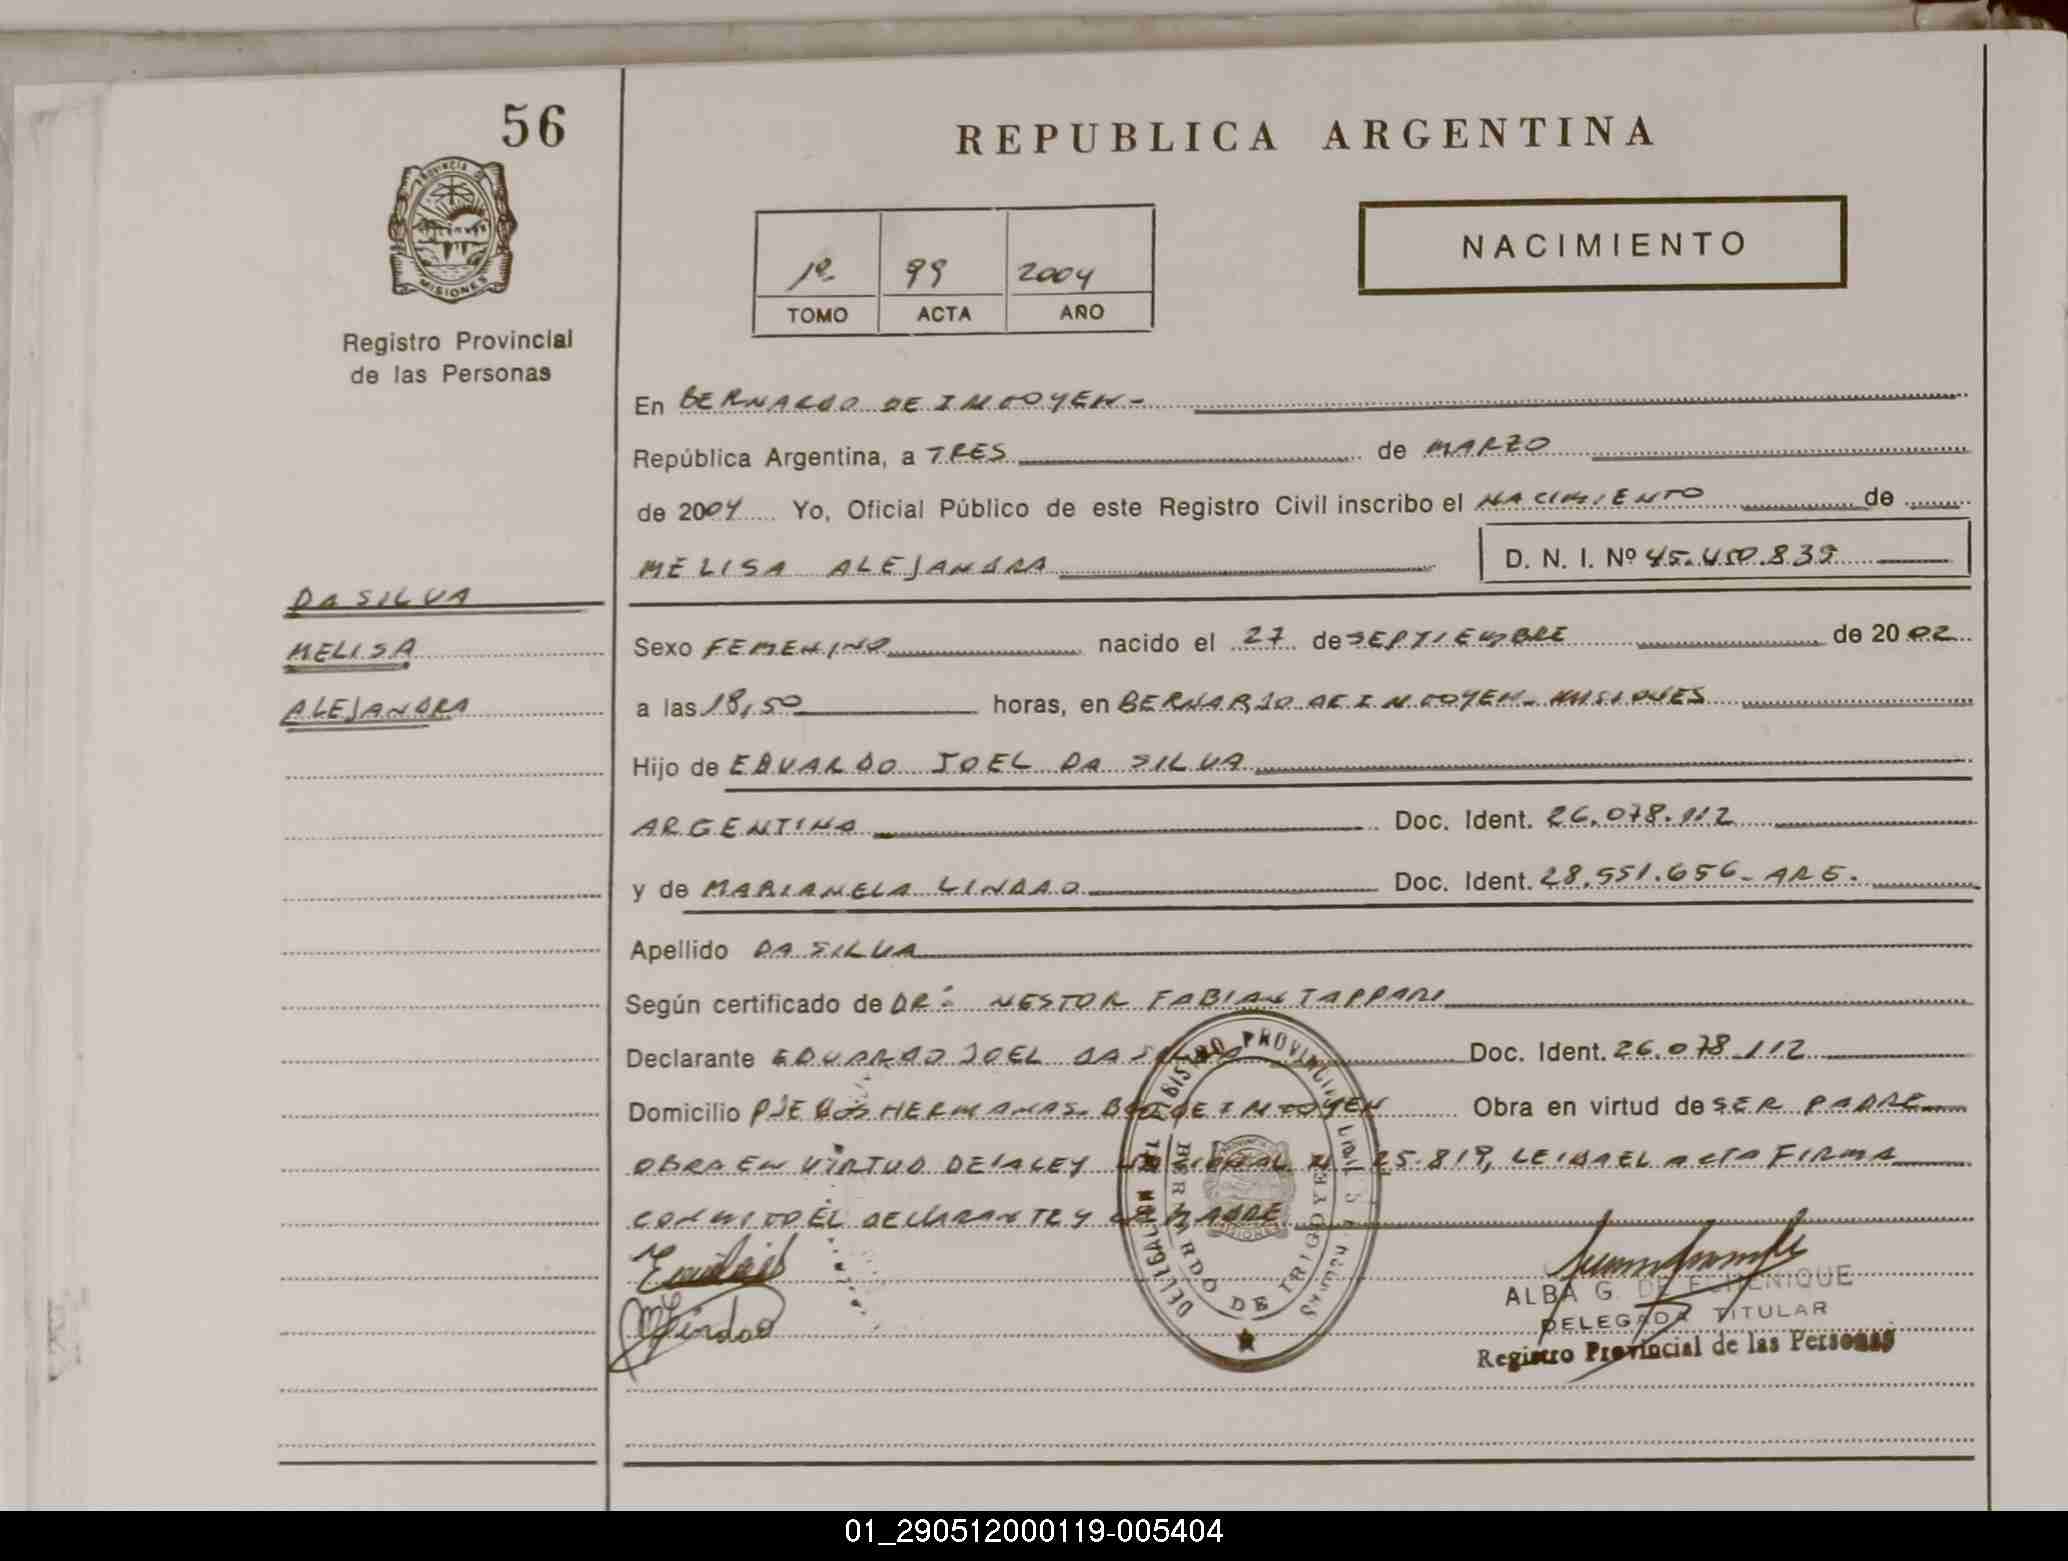 56
PROVINCIA DE
MISIONES
Registro Provincial
de las Personas
REPUBLICA ARGENTINA
NACIMIENTO
1º 99 2004
TOMO ACTA AÑO
En BERNARDO DE IRIGOYEN-
República Argentina, a TRES de MARZO
de 2004 Yo, Oficial Público de este Registro Civil inscribo el NACIMIENTO de
MELISA ALEJANDRA D. N. I. Nº 45.450.839
DA SILVA
MELISA
ALEJANDRA
Sexo FEMENINO nacido el 27 de SEPTIEMBRE de 2002
a las 18,50 horas, en BERNARDO DE IRIGOYEN- MISIONES
Hijo de EDUARDO JOEL DA SILVA
ARGENTINA Doc. Ident. 26.078.112
y de MARIANELA LINDAO Doc. Ident. 28.551.656- ARG.
Apellido DA SILVA
Según certificado de DR: NESTOR FABIAN TAPPARI
Declarante EDUARDO JOEL DA SILVA Doc. Ident. 26.078.112
Domicilio PJE DOS HERMANAS- BDO DE IRIGOYEN Obra en virtud de SER PADRE
OBRA EN VIRTUD DE LA LEY NACIONAL Nº 25.819, LEIDA EL ACTA FIRMA
CONMIGO EL DECLARANTE Y LA MADRE
MLindao
REGISTRO PROVINCIAL
BERNARDO DE IRIGOYEN
MISIONES
ALBA G. DE ECHENIQUE
DELEGADA TITULAR
Registro Provincial de las Personas
01_290512000119-005404